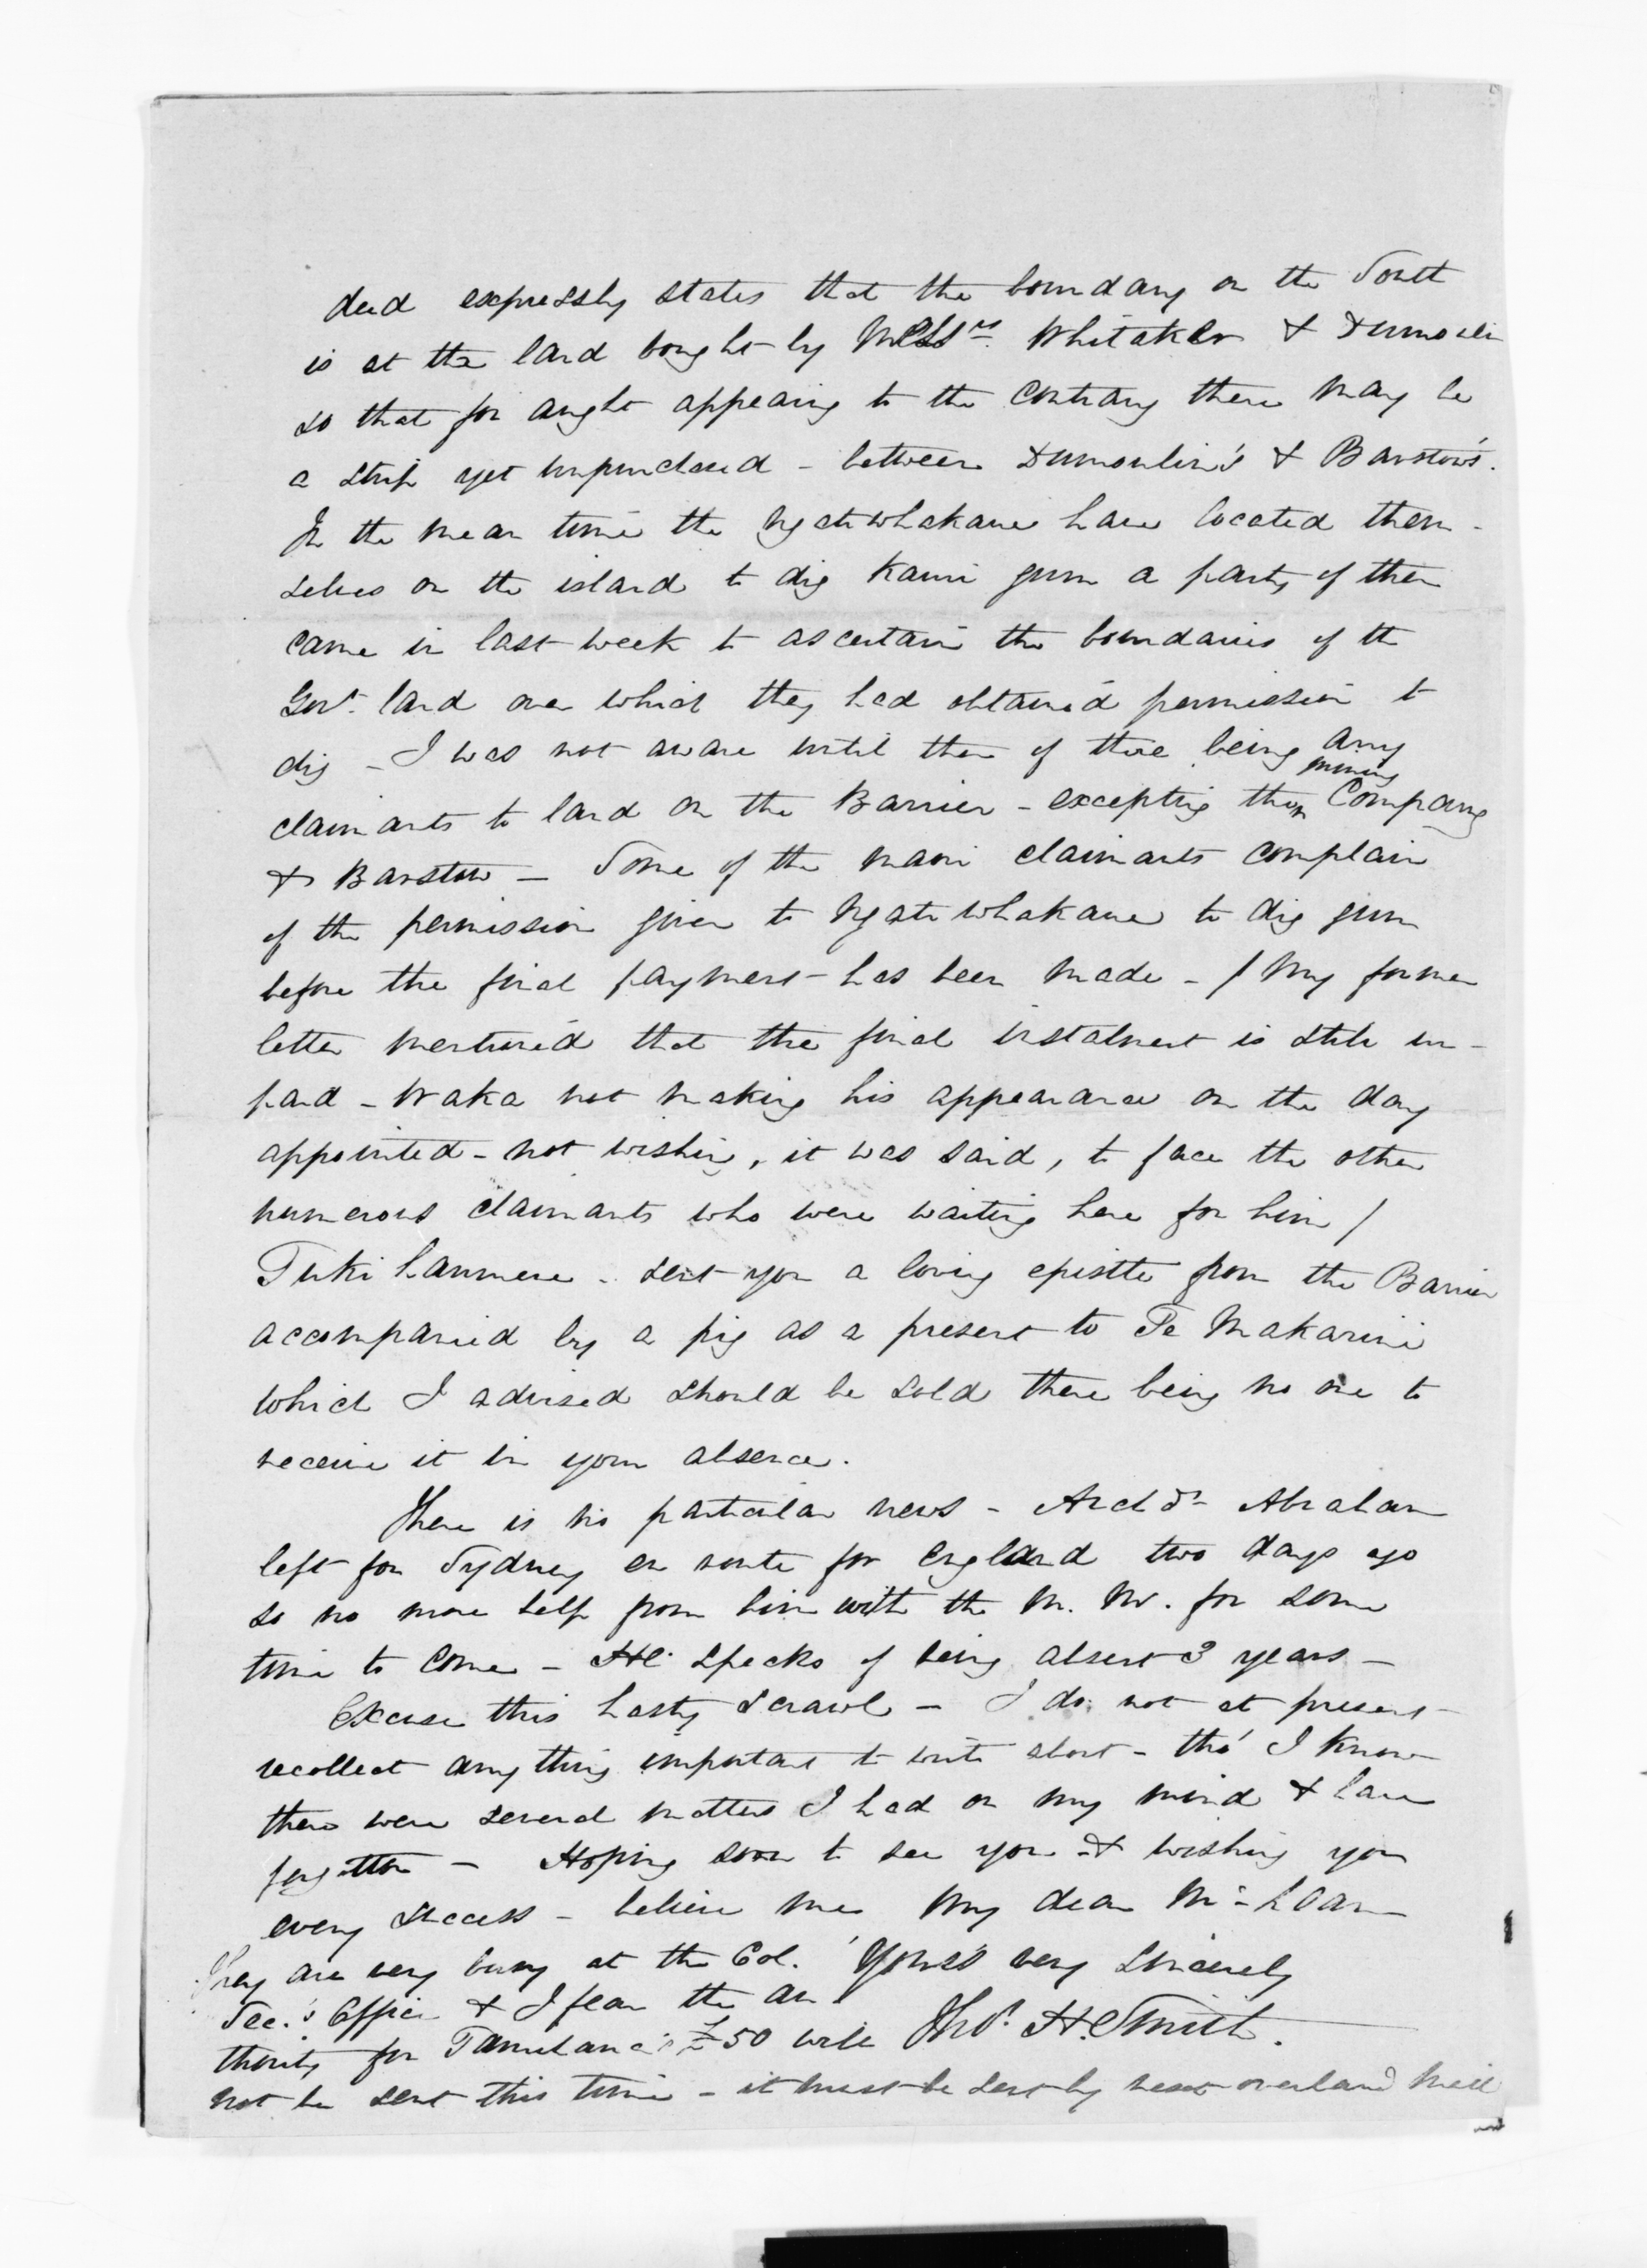 deed expressly states that the boundary on the South
is at the land bought by Messrs. Whitaker & Dumoulin
so that for aught appearing to the contrary there may be
a strip yet unpurchased - between Dumoulin's & Barstow's.
In the mean time the Ngatiwhakaue have located them-
selves on the island to dig Kauri gum a party of them
came in last week to ascertain the boundaries of the
Govt. land over which they had obtained permission to
dig - I was not aware until then of there being any
claimants to land on the Barrier - excepting the mining Company
& Barstow - Some of the maori claimants complain
of the permission given to Ngatiwhakaue to dig gum
before the final payment has been made - / My former
letter mentioned that the final instalment is still un-
paid - Waka not making his appearance on the day
appointed - not wishing, it was said, to face the other
numerous claimants who were waiting here for him /
Tukihaumene - sent you a loving epistle from the Barrier
accompanied by a pig as a present to Te Makarini
which I advised should be sold there being no one to
receive it in your absence.
There is no particular news - Archdn. Abraham
left for Sydney en route for England two days ago
so no more help from him with the M. M. for some
time to come - He speaks of being absent 3 years -
Excuse this hasty scrawl - I do not at present
recollect any thing important to write about - tho' I know
there were several matters I had on my mind & have
forgotten - Hoping soon to see you & wishing you
every success - believe me My dear McLean
Yours very sincerely
Thos. H. Smith.
They are very busy at the Col.
Sec.'s Office & I fear the au
thority for Tamihana's £50 will
not be sent this time - it must be sent by next overland mail